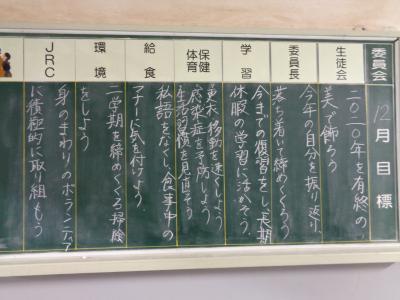 委員会
12月目標
生徒会
二〇二〇年を有終の
美で飾ろう
委員長
今年の自分を振り返り
落ち着いて締めくくろう
学習
今までの復習をし、長期
休暇の学習に活かそう。
保健
体育
換気、移動を速くしよう
感染症を予防しよう
生活習慣を見直そう
給食
私語をなくし、食事中の
マナーに気を付けよう。
環境
二学期を締めくくる掃除
をしよう
JRC
身のまわりのボランティア
に積極的に取り組もう